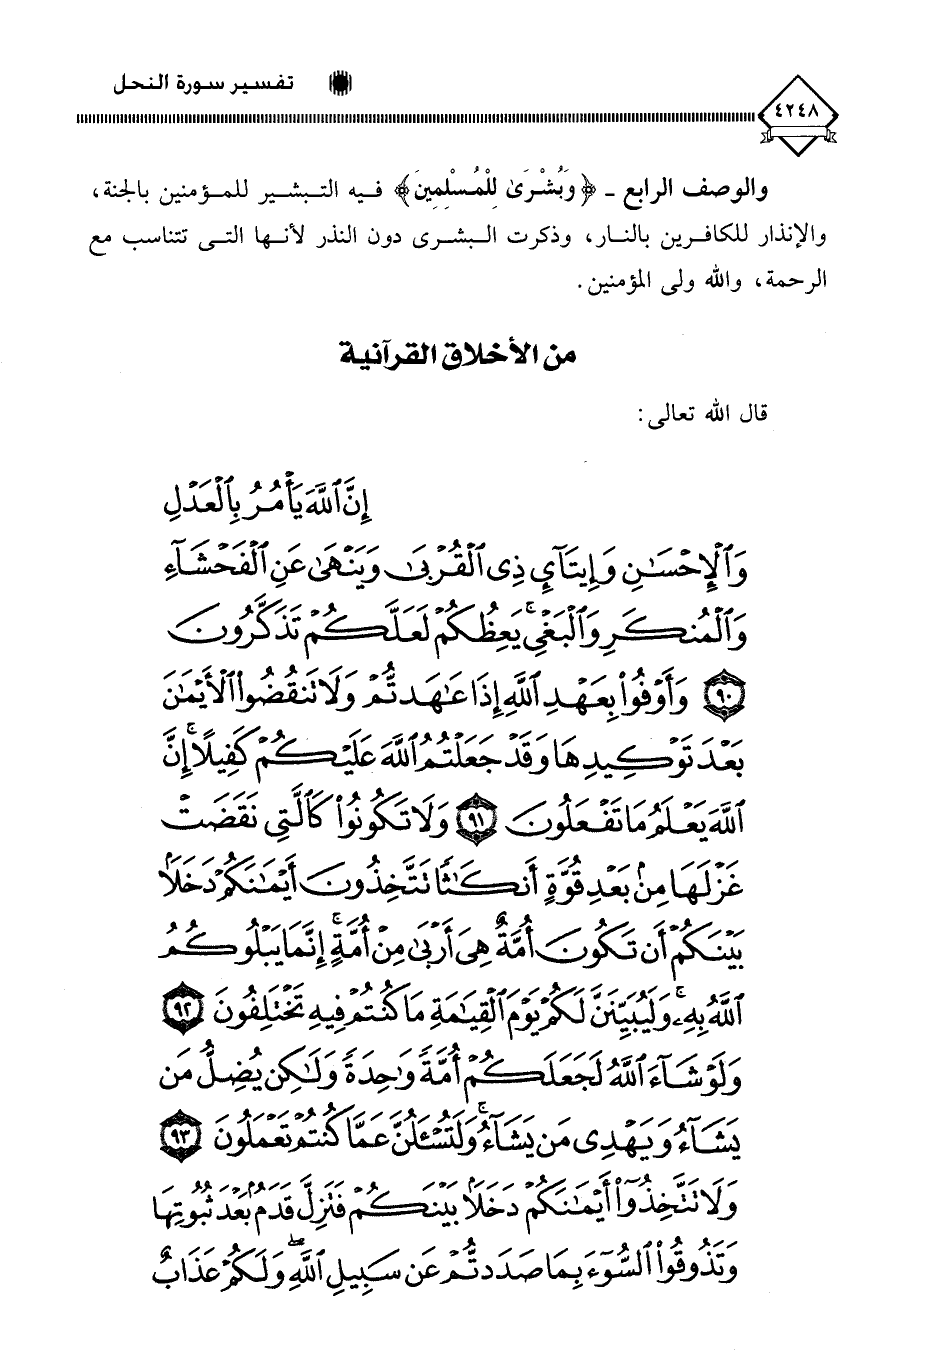 تفسير سورة النحل
٤٢٤٨
والوصف الرابع - ﴿وَبُشْرَىٰ لِلْمُسْلِمِينَ﴾ فيه التبشير للمؤمنين بالجنة،
والإنذار للكافرين بالنار، وذكرت البشرى دون النذر لأنها التى تتناسب مع
الرحمة، والله ولى المؤمنين.
من الأخلاق القرآنية
قال الله تعالى:
إِنَّ ٱللَّهَ يَأْمُرُ بِٱلْعَدْلِ
وَٱلْإِحْسَٰنِ وَإِيتَآيِٕ ذِى ٱلْقُرْبَىٰ وَيَنْهَىٰ عَنِ ٱلْفَحْشَآءِ
وَٱلْمُنكَرِ وَٱلْبَغْىِ ۚ يَعِظُكُمْ لَعَلَّكُمْ تَذَكَّرُونَ
﴿٩٠﴾ وَأَوْفُوا۟ بِعَهْدِ ٱللَّهِ إِذَا عَٰهَدتُّمْ وَلَا تَنقُضُوا۟ ٱلْأَيْمَٰنَ
بَعْدَ تَوْكِيدِهَا وَقَدْ جَعَلْتُمُ ٱللَّهَ عَلَيْكُمْ كَفِيلًا ۚ إِنَّ
ٱللَّهَ يَعْلَمُ مَا تَفْعَلُونَ ﴿٩١﴾ وَلَا تَكُونُوا۟ كَٱلَّتِى نَقَضَتْ
غَزْلَهَا مِنۢ بَعْدِ قُوَّةٍ أَنكَٰثًا تَتَّخِذُونَ أَيْمَٰنَكُمْ دَخَلًۢا
بَيْنَكُمْ أَن تَكُونَ أُمَّةٌ هِىَ أَرْبَىٰ مِنْ أُمَّةٍ ۚ إِنَّمَا يَبْلُوكُمُ
ٱللَّهُ بِهِۦ ۚ وَلَيُبَيِّنَنَّ لَكُمْ يَوْمَ ٱلْقِيَٰمَةِ مَا كُنتُمْ فِيهِ تَخْتَلِفُونَ ﴿٩٢﴾
وَلَوْ شَآءَ ٱللَّهُ لَجَعَلَكُمْ أُمَّةً وَٰحِدَةً وَلَٰكِن يُضِلُّ مَن
يَشَآءُ وَيَهْدِى مَن يَشَآءُ ۚ وَلَتُسْـَٔلُنَّ عَمَّا كُنتُمْ تَعْمَلُونَ ﴿٩٣﴾
وَلَا تَتَّخِذُوٓا۟ أَيْمَٰنَكُمْ دَخَلًۢا بَيْنَكُمْ فَتَزِلَّ قَدَمٌۢ بَعْدَ ثُبُوتِهَا
وَتَذُوقُوا۟ ٱلسُّوٓءَ بِمَا صَدَدتُّمْ عَن سَبِيلِ ٱللَّهِ ۖ وَلَكُمْ عَذَابٌ